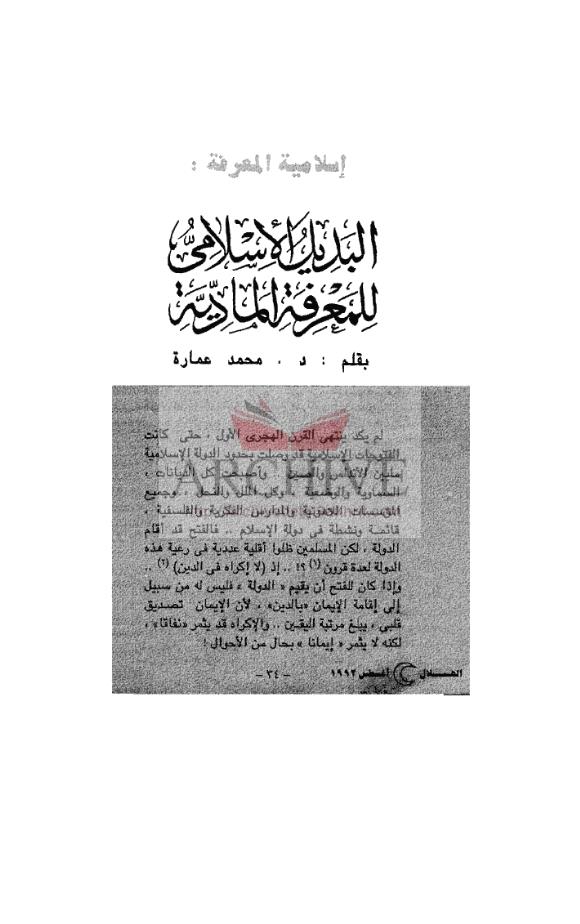 إسلامية المعرفة :
البديل الإسلامي
للمعرفة المادية
بقلم : د . محمد عمارة
لم يكد ينتهى القرن الهجرى الأول ، حتى كانت
الفتوحات الإسلامية قد وصلت بحدود الدولة الإسلامية
مابين الأندلس والصين وأصبحت كل الديانات ،
السماوية والوضعية ، وكل الملل والنحل ، وجميع
المؤسسات اللاهوتية والمدارس الفكرية والفلسفية ،
قائمة ونشطة فى دولة الإسلام .. فالفتح قد أقام
الدولة ، لكن المسلمين ظلوا أقلية عددية فى رعية هذه
الدولة لعدة قرون (١) ؟! .. إذ (لا إكراه فى الدين) (٢) ..
وإذا كان للفتح أن يقيم « الدولة » فليس له من سبيل
إلى إقامة الإيمان «بالدين» ، لأن الإيمان تصديق
قلبى ، يبلغ مرتبة اليقين .. والإكراه قد يثمر «نفاقا» ،
لكنه لا يثمر « إيمانا » بحال من الأحوال !
الهلال أغسطس ١٩٩٢
- ٣٤ -
ARCHIVE